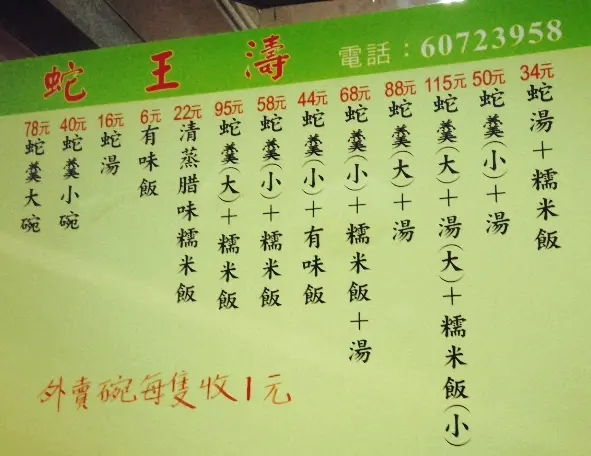 蛇王濤
電話：60723958
78元 蛇羹大碗
40元 蛇羹小碗
16元 蛇湯
6元 有味飯
22元 清蒸腊味糯米飯
95元 蛇羹(大)＋糯米飯
58元 蛇羹(小)＋糯米飯
44元 蛇羹(小)＋有味飯
68元 蛇羹(小)＋糯米飯＋湯
88元 蛇羹(大)＋湯
115元 蛇羹(大)＋湯(大)＋糯米飯(小)
50元 蛇羹(小)＋湯
34元 蛇湯＋糯米飯
外賣碗每隻收1元